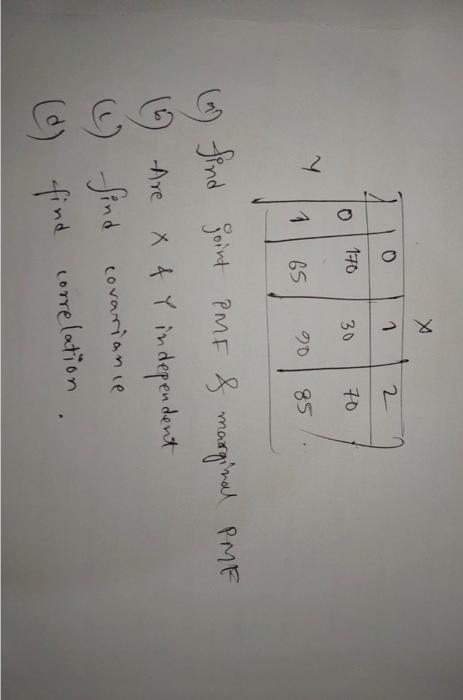 X
0 1 2
Y 0 170 30 70
1 65 90 85
(a) find joint PMF & marginal PMF
(b) Are X & Y independent
(c) find covariance
(d) find correlation.